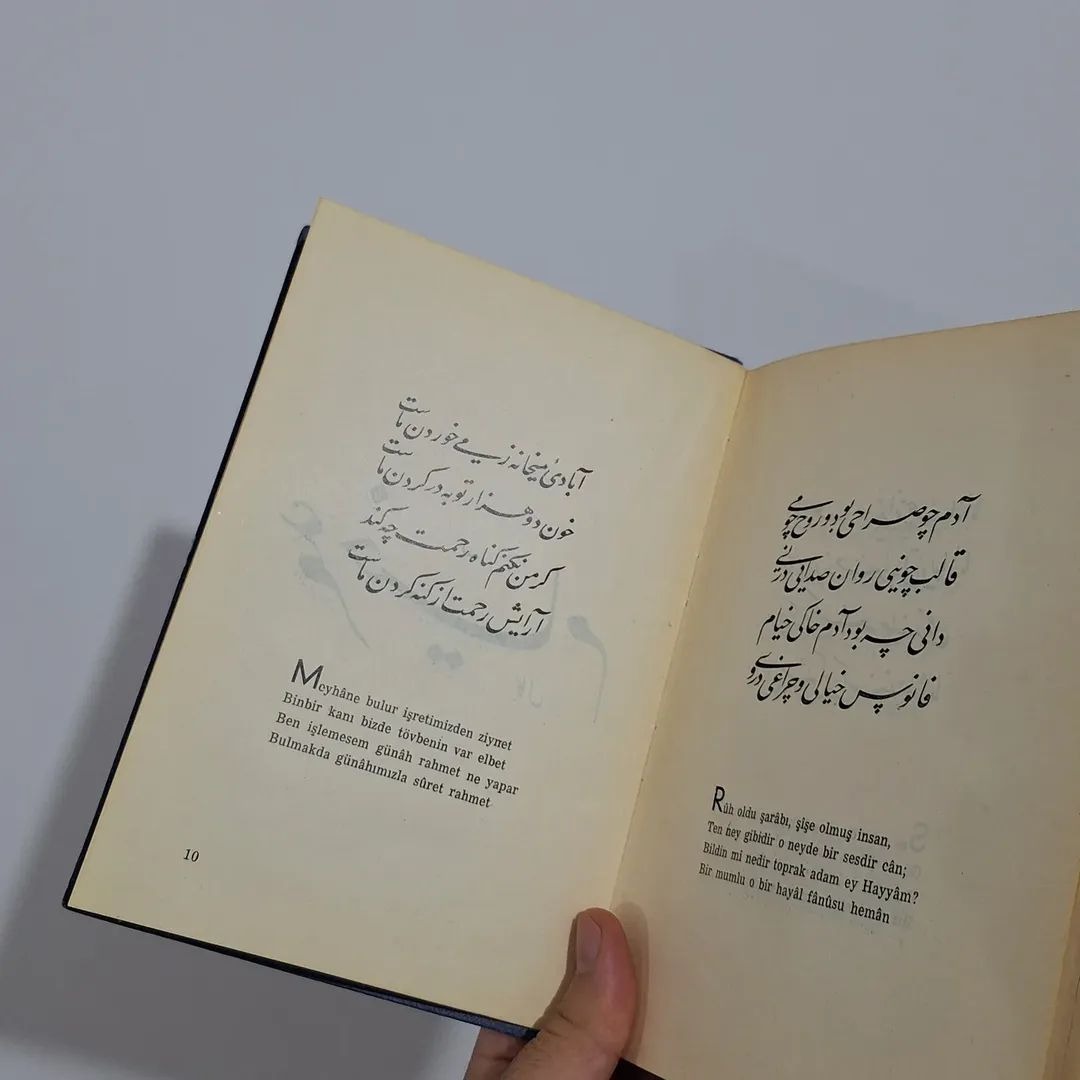 آبادیٔ میخانه ز می خوردن ماست
خون دو هزار توبه در گردن ماست
گر من نکنم گناه رحمت چه کند
آرایش رحمت از گنه کردن ماست
Meyhâne bulur işretimizden ziynet
Binbir kanı bizde tövbenin var elbet
Ben işlemesem günâh rahmet ne yapar
Bulmakda günâhımızla sûret rahmet
10
آدم چو صراحی بود و روح چو می
قالب چو نیی روان صدایی در نی
دانی چه بود آدم خاکی خیام
فانوس خیالی و چراغی در وی
Rûh oldu şarâbı, şişe olmuş insan,
Ten ney gibidir o neyde bir sesdir cân;
Bildin mi nedir toprak adam ey Hayyâm?
Bir mumlu o bir hayâl fânûsu hemân